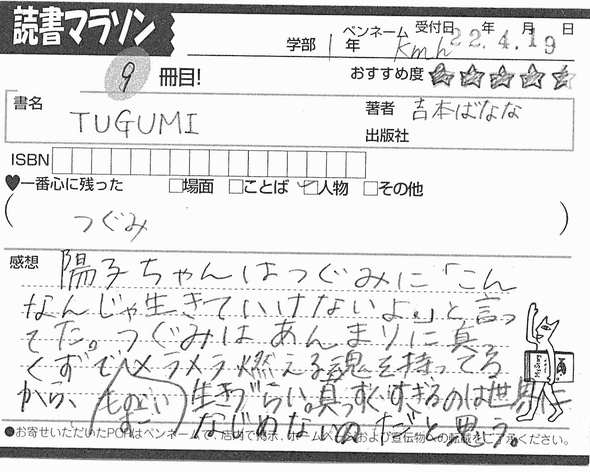 読書マラソン
学部 1年 ペンネーム kmh 受付日 22年4月19日
9 冊目!
おすすめ度 ★★★★★
書名 TUGUMI
著者 吉本ばなな
出版社
ISBN
♥一番心に残った □場面 □ことば ☑人物 □その他
( つぐみ )
感想
陽子ちゃんはつぐみに「こん
なんじゃ生きていけないよ。」と言っ
てた。つぐみはあんまりに真
くずでメラメラ燃える魂を持ってる
から、ものすごい生きづらい。真っすぐすぎるのは世界に
なじめないのだと思う。
●お寄せいただいたPOPはペンネームで、店内で掲示、ホームページおよび宣伝物への転載をご了承ください。